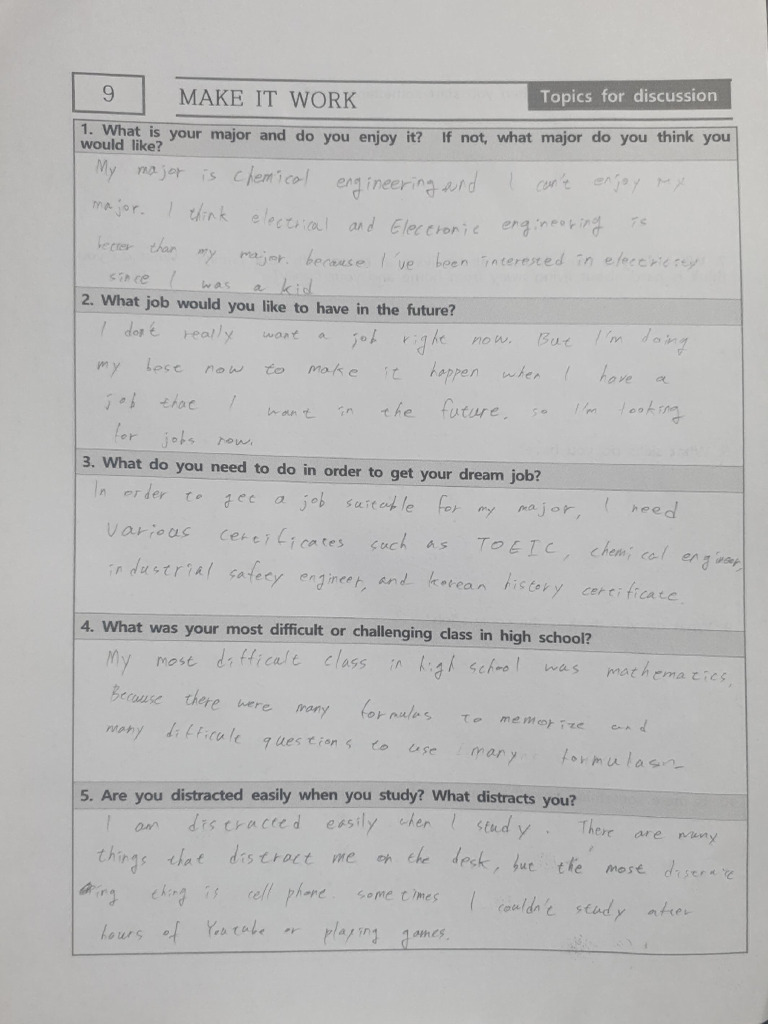 9
MAKE IT WORK
Topics for discussion
1. What is your major and do you enjoy it? If not, what major do you think you
would like?
My major is chemical engineering and I can't enjoy my
major. I think electrical and Electronic engineering is
better than my major. because I've been interested in electricity
since I was a kid
2. What job would you like to have in the future?
I don't really want a job right now. But I'm doing
my best now to make it happen when I have a
job that I want in the future. so I'm looking
for jobs now.
3. What do you need to do in order to get your dream job?
In order to get a job suitable for my major, I need
various certificates such as TOEIC, chemical engineer,
industrial safety engineer, and korean history certificate.
4. What was your most difficult or challenging class in high school?
My most difficult class in high school was mathematics.
Because there were many formulas to memorize and
many difficult questions to use many formulas
5. Are you distracted easily when you study? What distracts you?
I am distracted easily when I study. There are many
things that distract me on the desk, but the most distract
ing thing is cell phone. sometimes I couldn't study after
hours of Youtube or playing games.